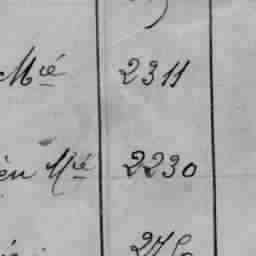 Mié 2311
en Mié 2230